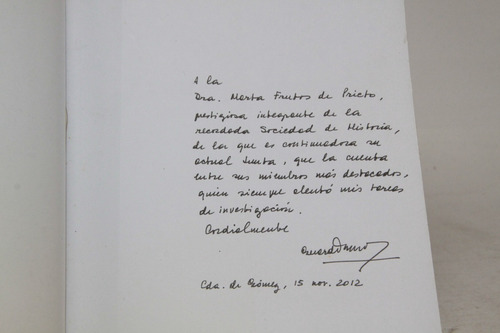 A la
Dra. Marta Frutos de Prieto,
prestigiosa integrante de la
recordada Sociedad de Historia,
de la que es continuadora su
actual Junta, que la cuenta
entre sus miembros más destacados,
quien siempre alentó mis tareas
de investigación.
Cordialmente
Cda. de Gómez, 15 nov. 2012